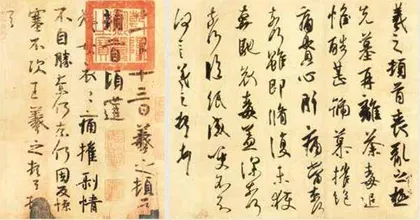 羲之頓首喪亂之極
先墓再離荼毒追
惟酷甚號慕摧絕
痛貫心肝痛當奈何
奈何雖即脩復未獲
奔馳哀毒益深奈何
奈何臨紙感哽不知
何言羲之頓首頓首
一月十三日羲之頓首
頓首頃遘
姨母哀哀痛摧剝情
不自勝奈何奈何因反慘
塞不次王羲之頓首頓首